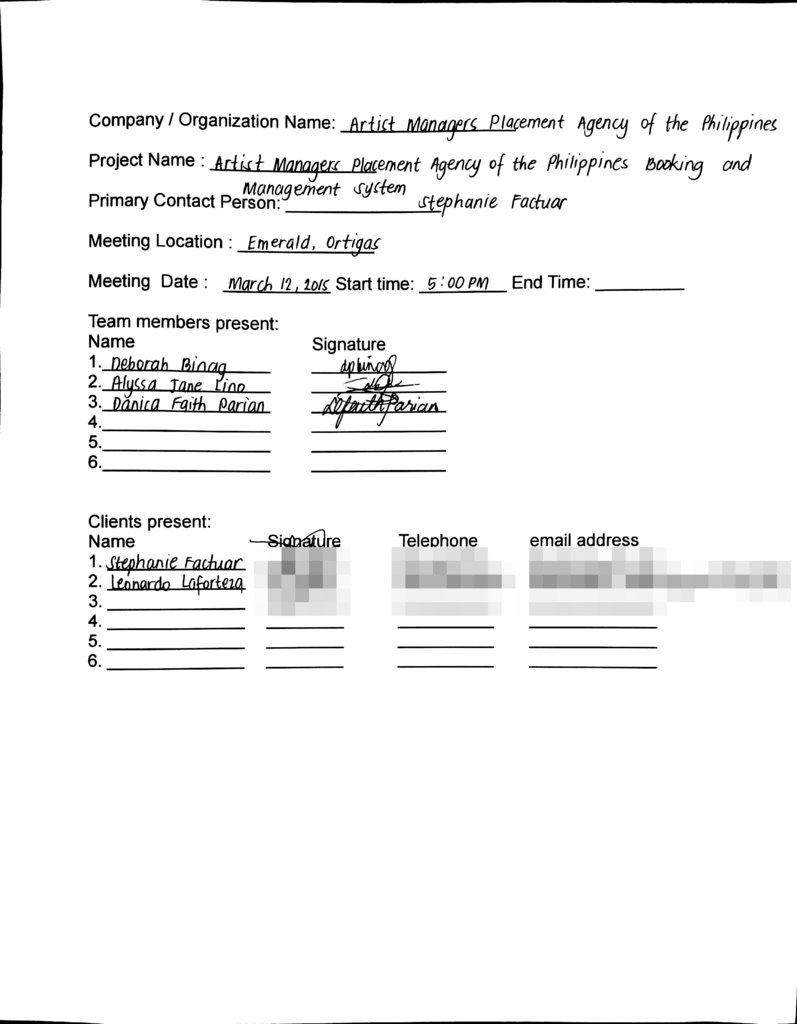 Company / Organization Name: Artist Managers Placement Agency of the Philippines
Project Name : Artist Managers Placement Agency of the Philippines Booking and
Management system
Primary Contact Person: Stephanie Factuar
Meeting Location : Emerald, Ortigas
Meeting Date : March 12, 2015 Start time: 5:00 PM End Time:
Team members present:
Name Signature
1. Deborah Binag dpbinag
2. Alyssa Jane Lino
3. Danica Faith Parian dfaithParian
4.
5.
6.
Clients present:
Name Signature Telephone email address
1. Stephanie Factuar
2. Lennardo Laforteza
3.
4.
5.
6.